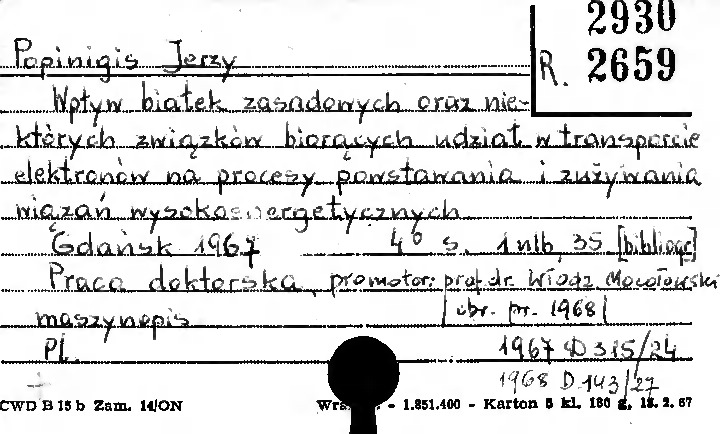 2930
Popinigis Jerzy
R. 2659
Wpływ białek zasadowych oraz nie-
których związków biorących udział w transporcie
elektronów na procesy powstawania i zużywania
wiązań wysokoenergetycznych
Gdańsk 1967 4° s. 1 nlb, 35 [bibliogr]
Praca doktorska, promotor: prof. dr. Włodz. Mozołowski
maszynopis [obr. pr. 1968]
Pl. 1967 D 315/24
1968 D 143/27
CWD B 15 b Zam. 14/ON - 1.851.400 - Karton 5 kl. 180 g. 18. 2. 67